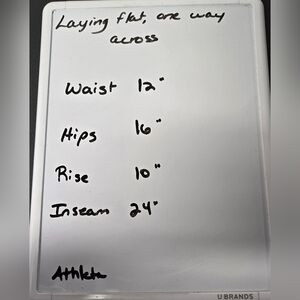 Laying flat, one way
across
Waist 12"
Hips 16"
Rise 10"
Inseam 24"
Athleta
U BRANDS